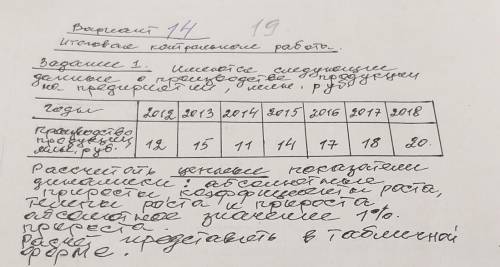 Вариант 14 19
Итоговая контрольная работа.
Задание 1. Имеются следующие
данные о производстве продукции
на предприятии, млн. руб.
Годы 2012 2013 2014 2015 2016 2017 2018
Производство продукции, млн. руб. 12 15 11 14 17 18 20
Рассчитать цепные показатели
динамики: абсолютные
приросты, коэффициенты роста,
темпы роста и прироста
абсолютное значение 1%
прироста.
Расчет представить в табличной
форме.